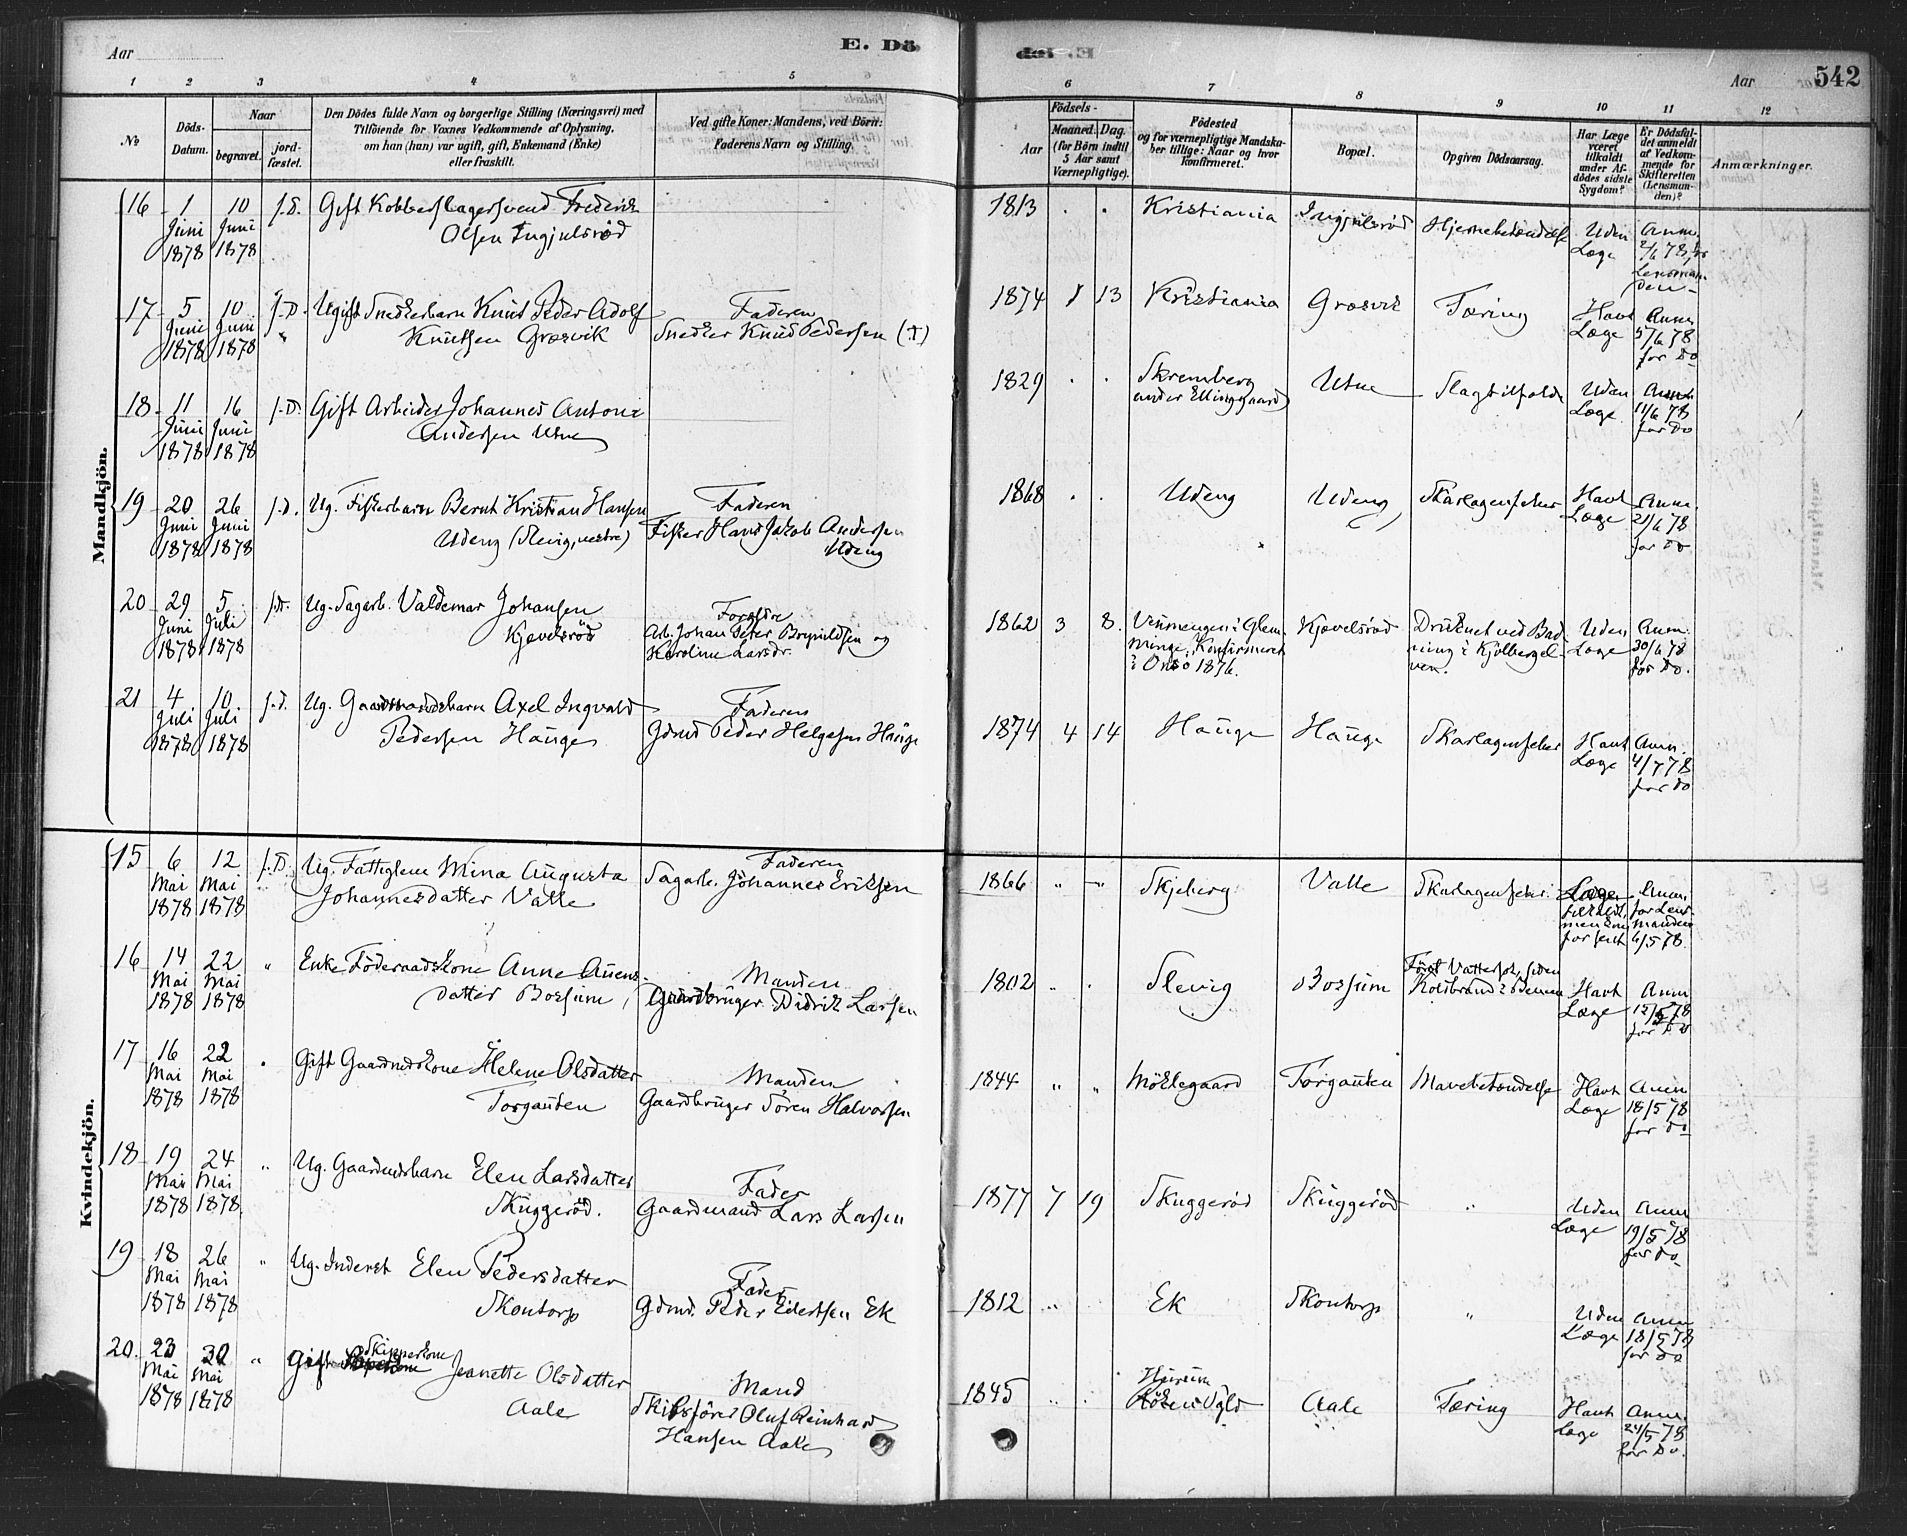 Aar
E. Dö
1 2 3 4 5
No
Döds-
Datum.
Naar
begravet.
jord-
fæstet.
Den Dödes fulde Navn og borgerlige Stilling (Næringsvei) med
Tilföiende for Voxnes Vedkommende af Oplysning.
om han (hun) var ugift, gift, Enkemand (Enke)
eller fraskilt.
Ved gifte Koner: Mandens, ved Börn:
Faderens Navn og Stilling.
Mandkjön.
16 1 10 j.D. Gift Kobberslagersvend Frederik
Juni Juni Olsen Ingjulsröd
1878 1878
17 5 10 j.D. Ugift Snedkerbarn Knut Peder Adolf Faderen
Juni Juni Knutsen Græsvik Snedker Knud Pedersen
1878 1878
18 11 16 j.D. Gift Arbeider Johannes Anton
Juni Juni Andersen Utne
1878 1878
19 20 26 j.d. Ug. Fiskerbarn Bernt Kristian Hansen Faderen
Juni Juni Udeng (Slevig, vestre) Fisker Hans Jakob Andersen
1878 1878 Udeng
20 29 5 j.D. Ug. Sagarb. Valdemar Johansen Forældre
Juni Juli Kjævelsröd Arb. Johan Peter Brynildsen og
1878 1878 Karoline Larsdr.
21 4 10 j.d. Ug. Gaardmandsbarn Axel Ingvald Faderen
Juli Juli Pedersen Hauge Gdmd Peder Helgesen Hauge
1878 1878
Kvindekjön.
15 6 12 j.D. Ug. Fattiglem Mina Augusta Faderen
Mai Mai Johannesdatter Valle Sagarb. Johannes Eriksen
1878 1878
16 14 22 " Enke Föderaadskone Anne Auens- Manden
Mai Mai datter Bossum Gaardbruger Didrik Larsen
1878 1878
17 16 22 " Gift Gaardmdskone Helene Olsdatter Manden
Mai Mai Torgauten Gaardbruger Sören Halvorsen
1878 1878
18 19 24 " Ug. Gaardmdsbarn Elen Larsdatter Fader
Mai Mai Skuggeröd. Gaardmand Lars Larsen
1878 1878
19 18 26 " Ug. Inderst Elen Pedersdatter Fader
Mai Mai Skontorp Gdmd. Peder Eilertsen Ek
1878 1878
20. 23 30 " Gift Skipperkone Jeanette Olsdatter Mand
Mai Mai Aale Skibsförer Oluf Reinhard
1878 1878 Hansen Aale
Aar 542
6 7 8 9 10 11 12
Aar
Födsels-
Maaned. Dag.
(for Börn indtil
5 Aar samt
Værnepligtige).
Födested
og for værnepligtige Mandska-
ber tillige: Naar og hvor
konfirmeret.
Bopæl.
Opgiven Dödsaarsag.
Har Læge
været
tilkaldt
under Af-
dödes sidste
Sygdom?
Er Dödsfal-
det anmeldt
af Vedkom-
mende for
Skifteretten
(Lensman-
den)?
Anmærkninger.
1813 . . Kristiania Ingjulsröd Hjernebetændelse Uden Anm.
Læge 2/6 78 for
Lensman-
den
1874 1 13 Kristiania Græsvik Tæring Havt Anm
Læge 5/6 78
for Do
1829 . . Skremberg Utne Slagtilfælde Uden Anm
under Elinggaard Læge 11/6 78
for Do
1868 . . Udeng Udeng Skarlagensfeber Havt Anm.
Læge 21/6 78
for Do
1862 3 8. i Glem- Kjævelsröd Druknet ved Bad- Uden Anm.
minge, Konfirmeret ning i Kjölbergel- Læge 30/6 78
i Onsö 1876. ven. for Do.
1874 4 14 Hauge Hauge Skarlagensfeber Havt Anm.
Læge 4/7 78
for Do
1866 " " Skjeberg Valle Skarlagensfeber. Læge Anm.
tilkaldt, for Lens-
men kom manden
for sent 6/5 78.
1802 " . Slevig Bossum Först Vattersot, siden
Koldbrand i Benene Havt Anm
Læge 15/5 78
for Do
1844 " " Möklegaard Torgauten Mavebetændelse Havt Anm
Læge 18/5 78
for Do
1877 7 19 Skuggeröd Skuggeröd " Uden Anm
Læge 19/5 78
for Do
1812 " Ek Skontorp " Uden Anm
Læge 18/5 78
for Do
1845 " . Aale Tæring Havt Anm.
Læge 24/5 78
for Do.